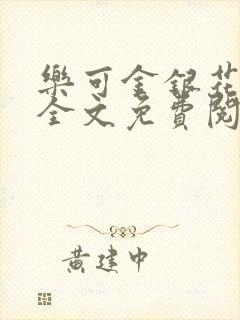 樂可金銀花
全文免費閱
黃建中